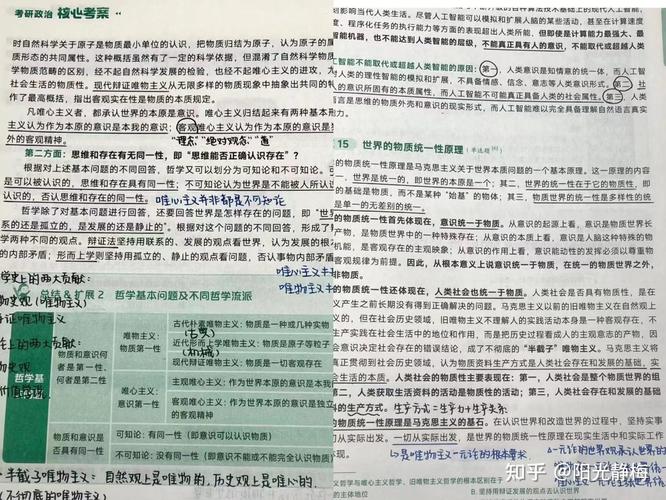 考研政治 核心考案
时自然科学关于原子是物质最小单位的认识，把物质归结为原子，认为原子的属
质形态的共同属性。这种概括虽然有了一定的科学依据，但混淆了自然科学物质
学物质范畴的区别，经不起自然科学发展的检验，也经不起唯心主义的进攻，
社会生活的物质性。现代辩证唯物主义从无限多样的物质现象中抽象出共同的特
作了最高概括，指出客观实在性是物质的本质规定。
凡唯心主义者，都承认世界的本原是意识。唯心主义归结起来有两种基本形
主义认为作为本原的意识是本我的意识；客观唯心主义认为作为本原的意识是
外的客观精神。 “理念”“绝对观念”“道”
第二方面：思维和存在有无同一性，即“思维能否正确认识存在？”
根据对上述基本问题的不同回答，哲学又可以划分为可知论和不可知论。可
是可以被认识的，思维和存在具有同一性；不可知论认为世界是不能被人所认识
认识的，否认思维和存在的同一性。 唯心主义并非都是不可知论
哲学除了对基本问题进行回答，还要回答世界是怎样存在的问题，即“世界
系的还是孤立的，是发展的还是静止的”。根据对这个问题的不同回答，形成了
学两种不同的观点。辩证法坚持用联系的、发展的观点看世界，认为发展的根
的内部矛盾；形而上学则坚持用孤立、静止的观点看问题，否认事物内部矛盾
学史上的两大贡献:
总结&扩展 2 哲学基本问题及不同哲学流派
物质和意识何者是第一性、何者是第二性
唯物主义：物质第一性
古代朴素唯物主义：物质是一种或几种实物
近代形而上学唯物主义：物质是原子等粒子
(机械)
现代辩证唯物主义：物质是一切客观存在
唯心主义：意识第一性
主观唯心主义：作为世界本原的意识是本我
客观唯心主义：作为世界本原的意识是独立的客观精神
哲学基
物质和意识是否具有同一性
可知论：有同一性（即意识可以认识物质）
不可知论：没有同一性（即意识不能或不能完全认识物质）
半截子唯物主义: 自然观上是唯物的, 历史观上是唯心的.
(不彻底的唯物主义)
影响当代人类生活。尽管人工智能可以模拟和扩展人脑的某些活动，甚至在计算速度
度、程序化任务的执行能力等方面的表现超出人类所能，但即使是计算能力最强大、最
智能机器，也不能达到人类智能的层级，不能真正具有人的意识，不能取代或超越人类智
工智能不能取代或超越人类智能的原因：第一，人类意识是知情意的统一体，而人工智
对人类的理性智能的模拟和扩展，不具备情感、信念、意志等人类意识形式。第二，社
的意识所固有的本质属性，而人工智能不可能真正具备人类的社会属性。第三，人类
语言是思维的物质外壳和意识的现实形式，而人工智能难以完全具备理解自然语言真实
15 世界的物质统一性原理（单选题）
的物质统一性原理是马克思主义关于世界本质问题的一个基本原理。这一原理的内容
一，世界是统一的，即世界的本原是一个；其二，世界的统一性在于它的物质性，即
的基础是物质，而不是某种“始基”的物体；其三，物质世界的统一性是多样性的统
是单一的无差别的统一。
的统一性首先体现在，意识统一于物质。从意识的起源上看，意识是物质世界长
产物，是物质世界中的一种特殊存在；从意识的本质上看，意识是人脑这样的特殊的物
机能，是客观存在的主观映象；从意识的作用上看，意识能动性的发挥必须以尊重物
客观规律为前提。因此，从根本意义上说意识统一于物质，在统一的物质世界之外，
非物质的世界。
的统一性还体现在，人类社会也统一于物质。人类社会是否具有物质性，是在
义产生之前长期没有得到正确解决的问题。马克思主义以前的旧唯物主义在自然观上
义的，但在社会历史领域，旧唯物主义不理解人的实践活动本身是一种客观现存，不
生产实践在社会生活中的地位和作用，而是把历史过程看成人的主观意志的产物，因
会意识决定社会存在的错误结论，成了不彻底的“半截子”唯物主义。马克思主义将
真正贯彻到社会历史领域，认为物质资料生产方式是人类社会存在和发展的基础，实
会生活的本质。人类社会的物质性主要表现在：第一，人类社会是整个物质世界的组
第二，人类获取生活资料的活动是物质性的活动；第三，人类社会存在和发展的基础
料的生产方式。 生产方式=生产力+生产关系
的统一性原理是马克思主义的基石。在认识世界和改造世界的过程中，坚持实事
，一切从实际出发，是世界的物质统一性原理在现实生活中和实际工作
↳是唯物主义一元论的根本要求
义哲学与唯心主义哲学、旧唯物主义哲学的根本区别在于
B. 坚持用辩证发展的观点去认识世界
知乎 @阳光静梅